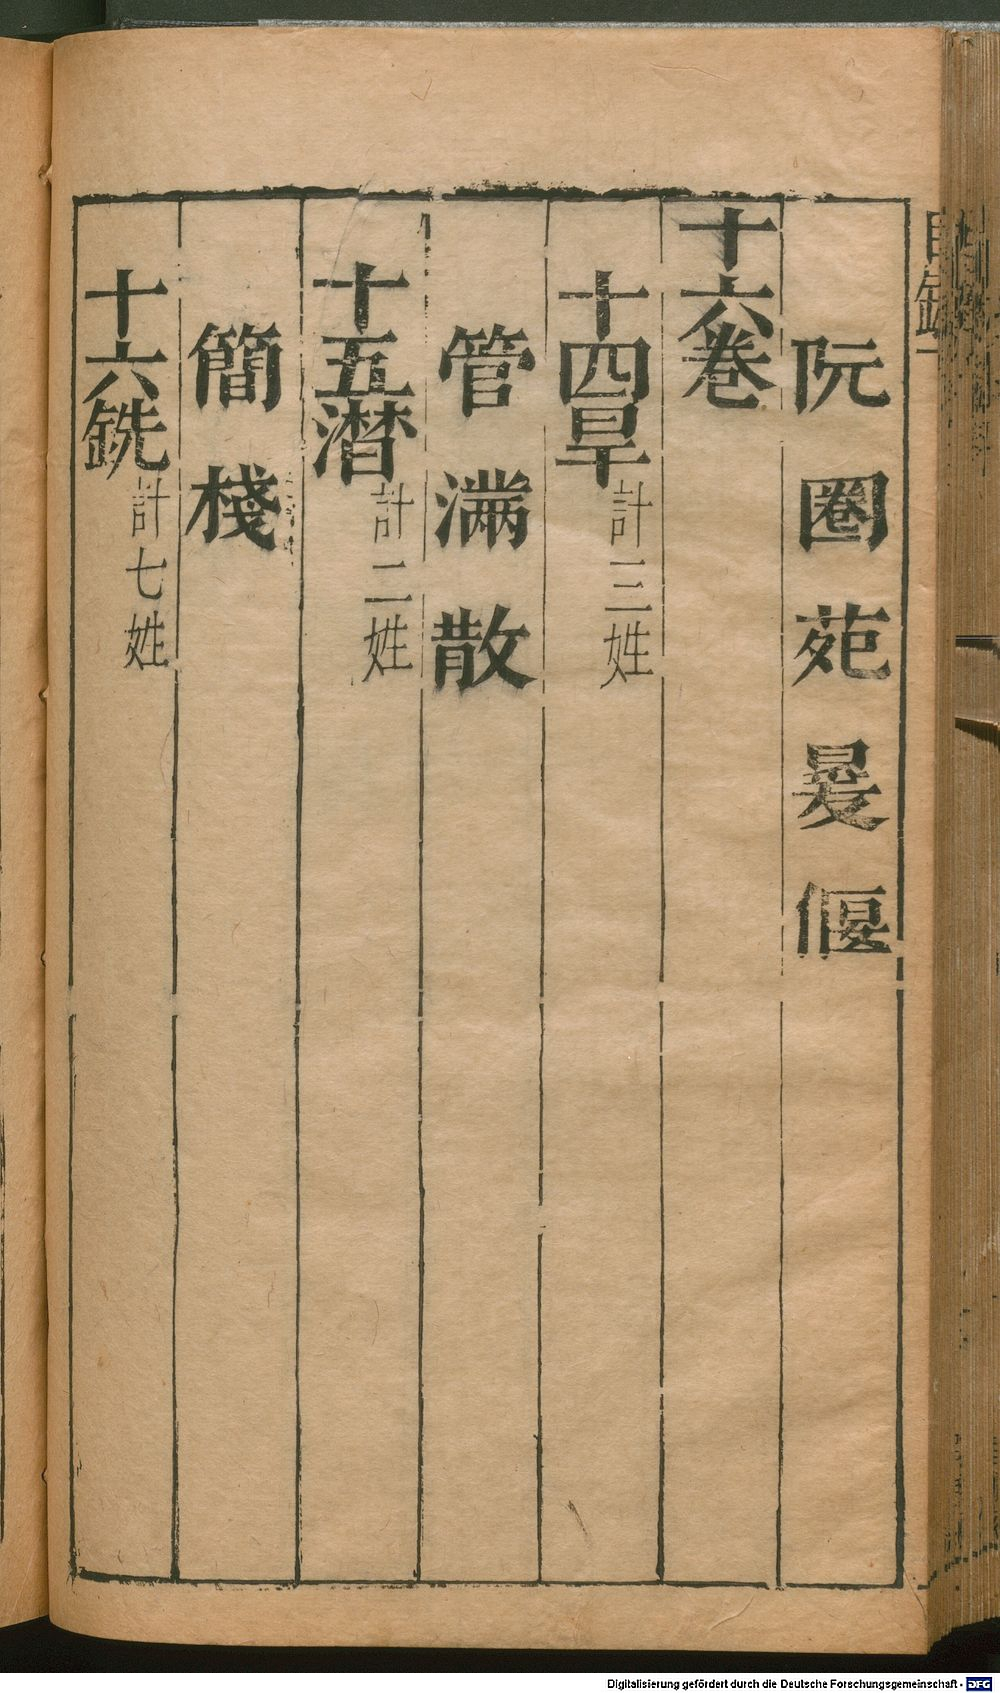 阮圈苑㬊偃
十六卷
十四旱計三姓
管滿散
十五潸計二姓
簡棧
十六銑計七姓
目錄
Digitalisierung gefördert durch die Deutsche Forschungsgemeinschaft - DFG